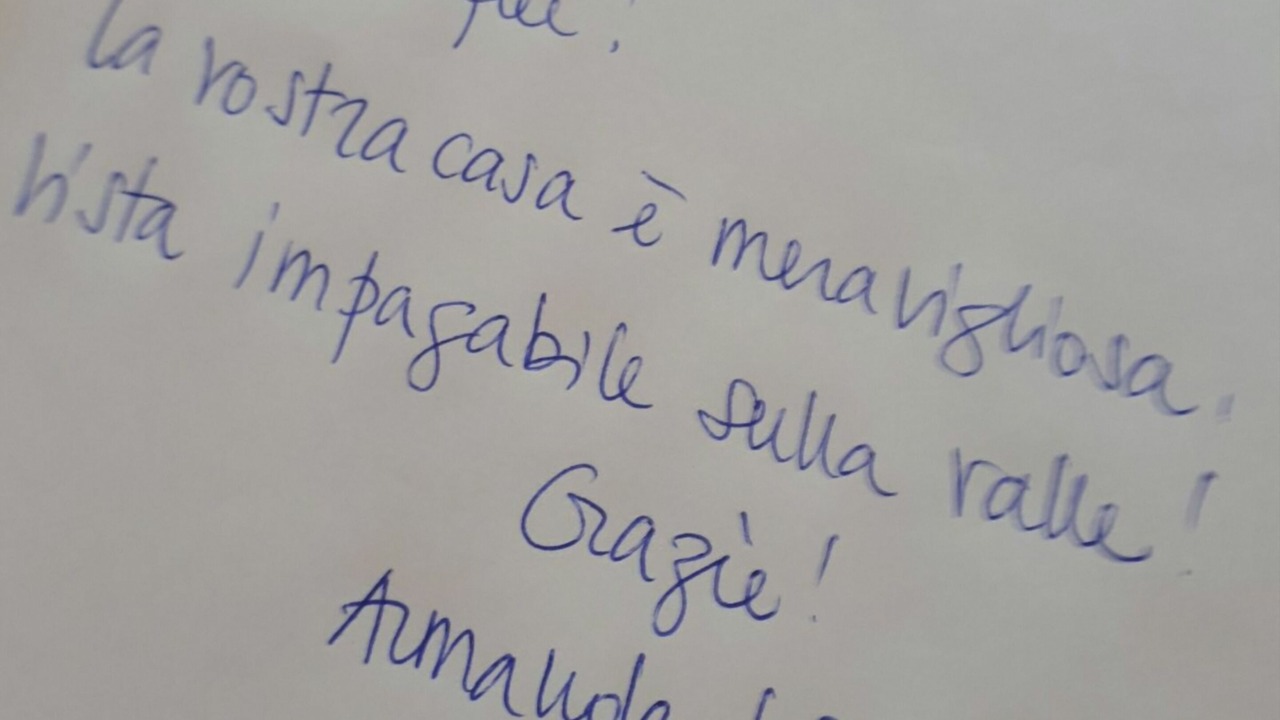 La vostra casa è meravigliosa.
Vista impagabile sulla valle!
Grazie!